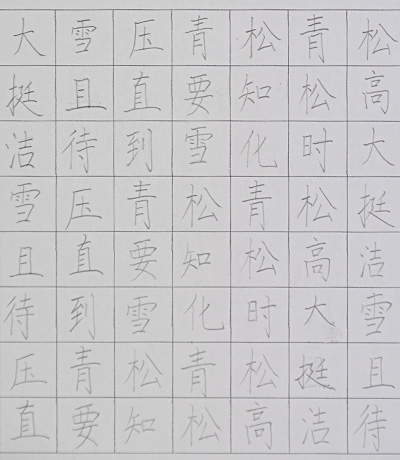 大雪压青松青松
挺且直要知松高
洁待到雪化时大
雪压青松青松挺
且直要知松高洁
待到雪化时大雪
压青松青松挺且
直要知松高洁待